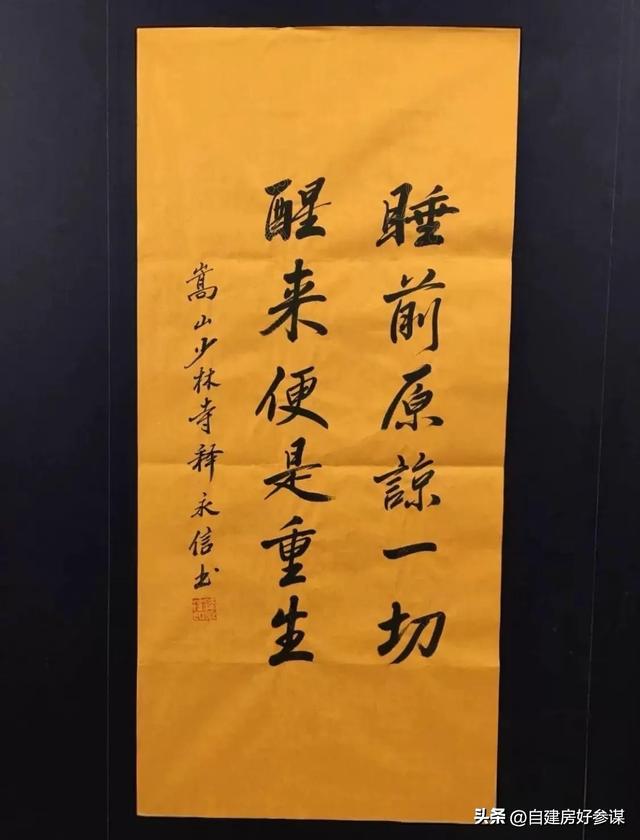 睡前原谅一切
醒来便是重生
嵩山少林寺释永信书
头条 @自建房好参谋